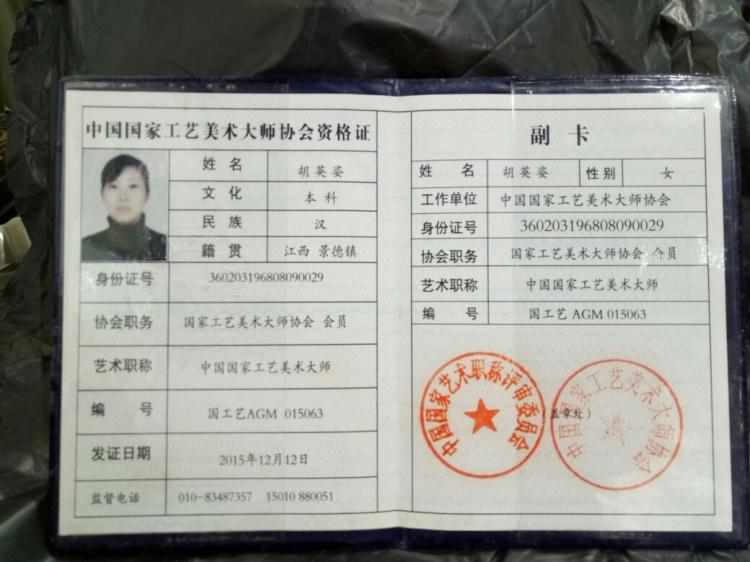 中国国家工艺美术大师协会资格证
姓名 胡英姿
文化 本科
民族 汉
籍贯 江西 景德镇
身份证号 360203196808090029
协会职务 国家工艺美术大师协会 会员
艺术职称 中国国家工艺美术大师
编号 国工艺AGM 015063
发证日期 2015年12月12日
监督电话 010-83487357 15010 880051
副卡
姓名 胡英姿 性别 女
工作单位 中国国家工艺美术大师协会
身份证号 360203196808090029
协会职务 国家工艺美术大师协会 会员
艺术职称 中国国家工艺美术大师
编号 国工艺 AGM 015063
中国国家艺术职称评审委员会
(盖章处)
中国国家工艺美术大师协会